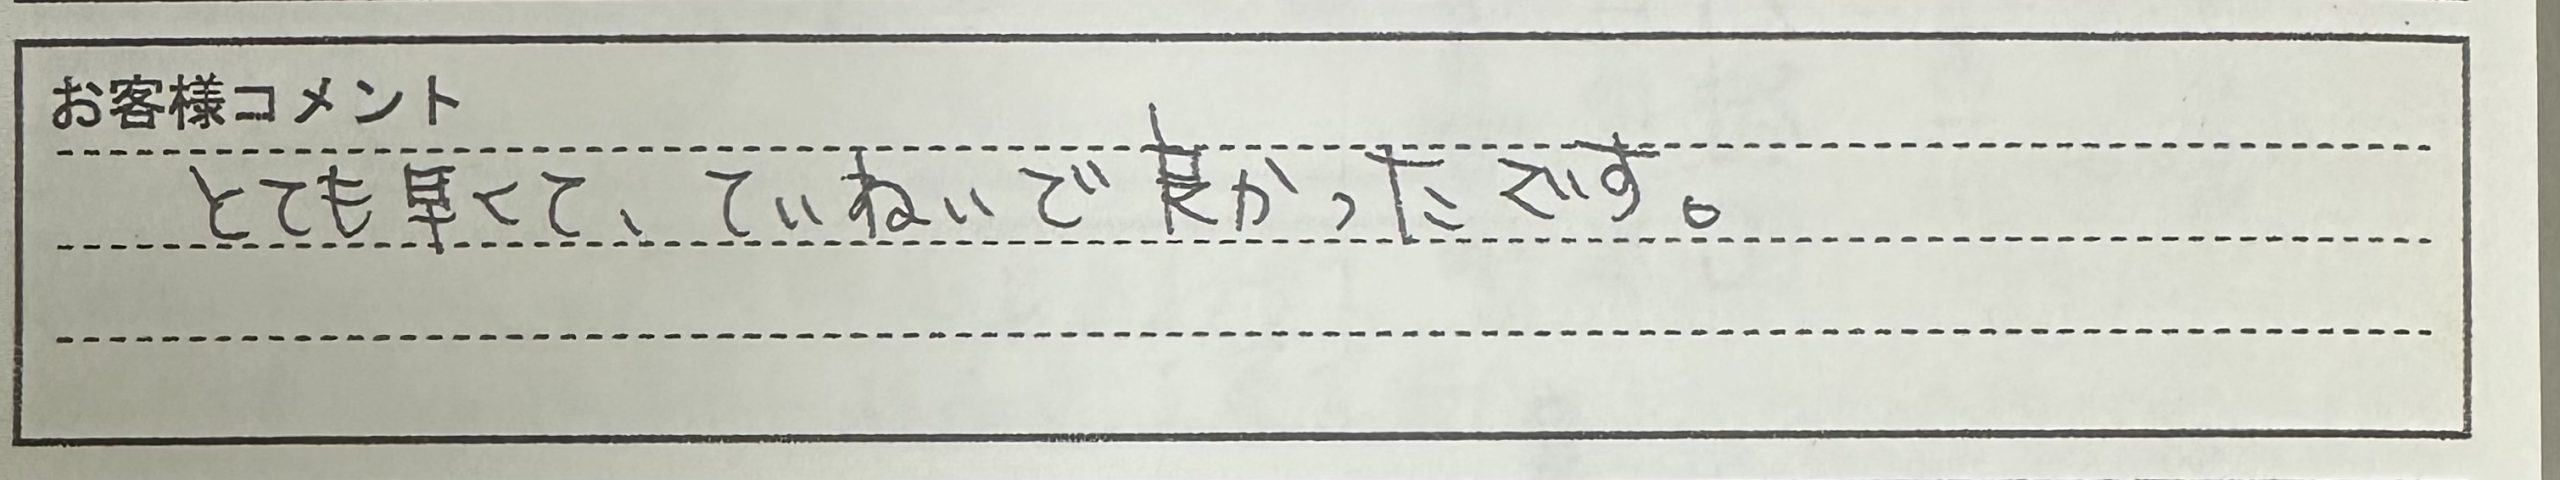 お客様コメント
とても早くて、ていねいで良かったです。